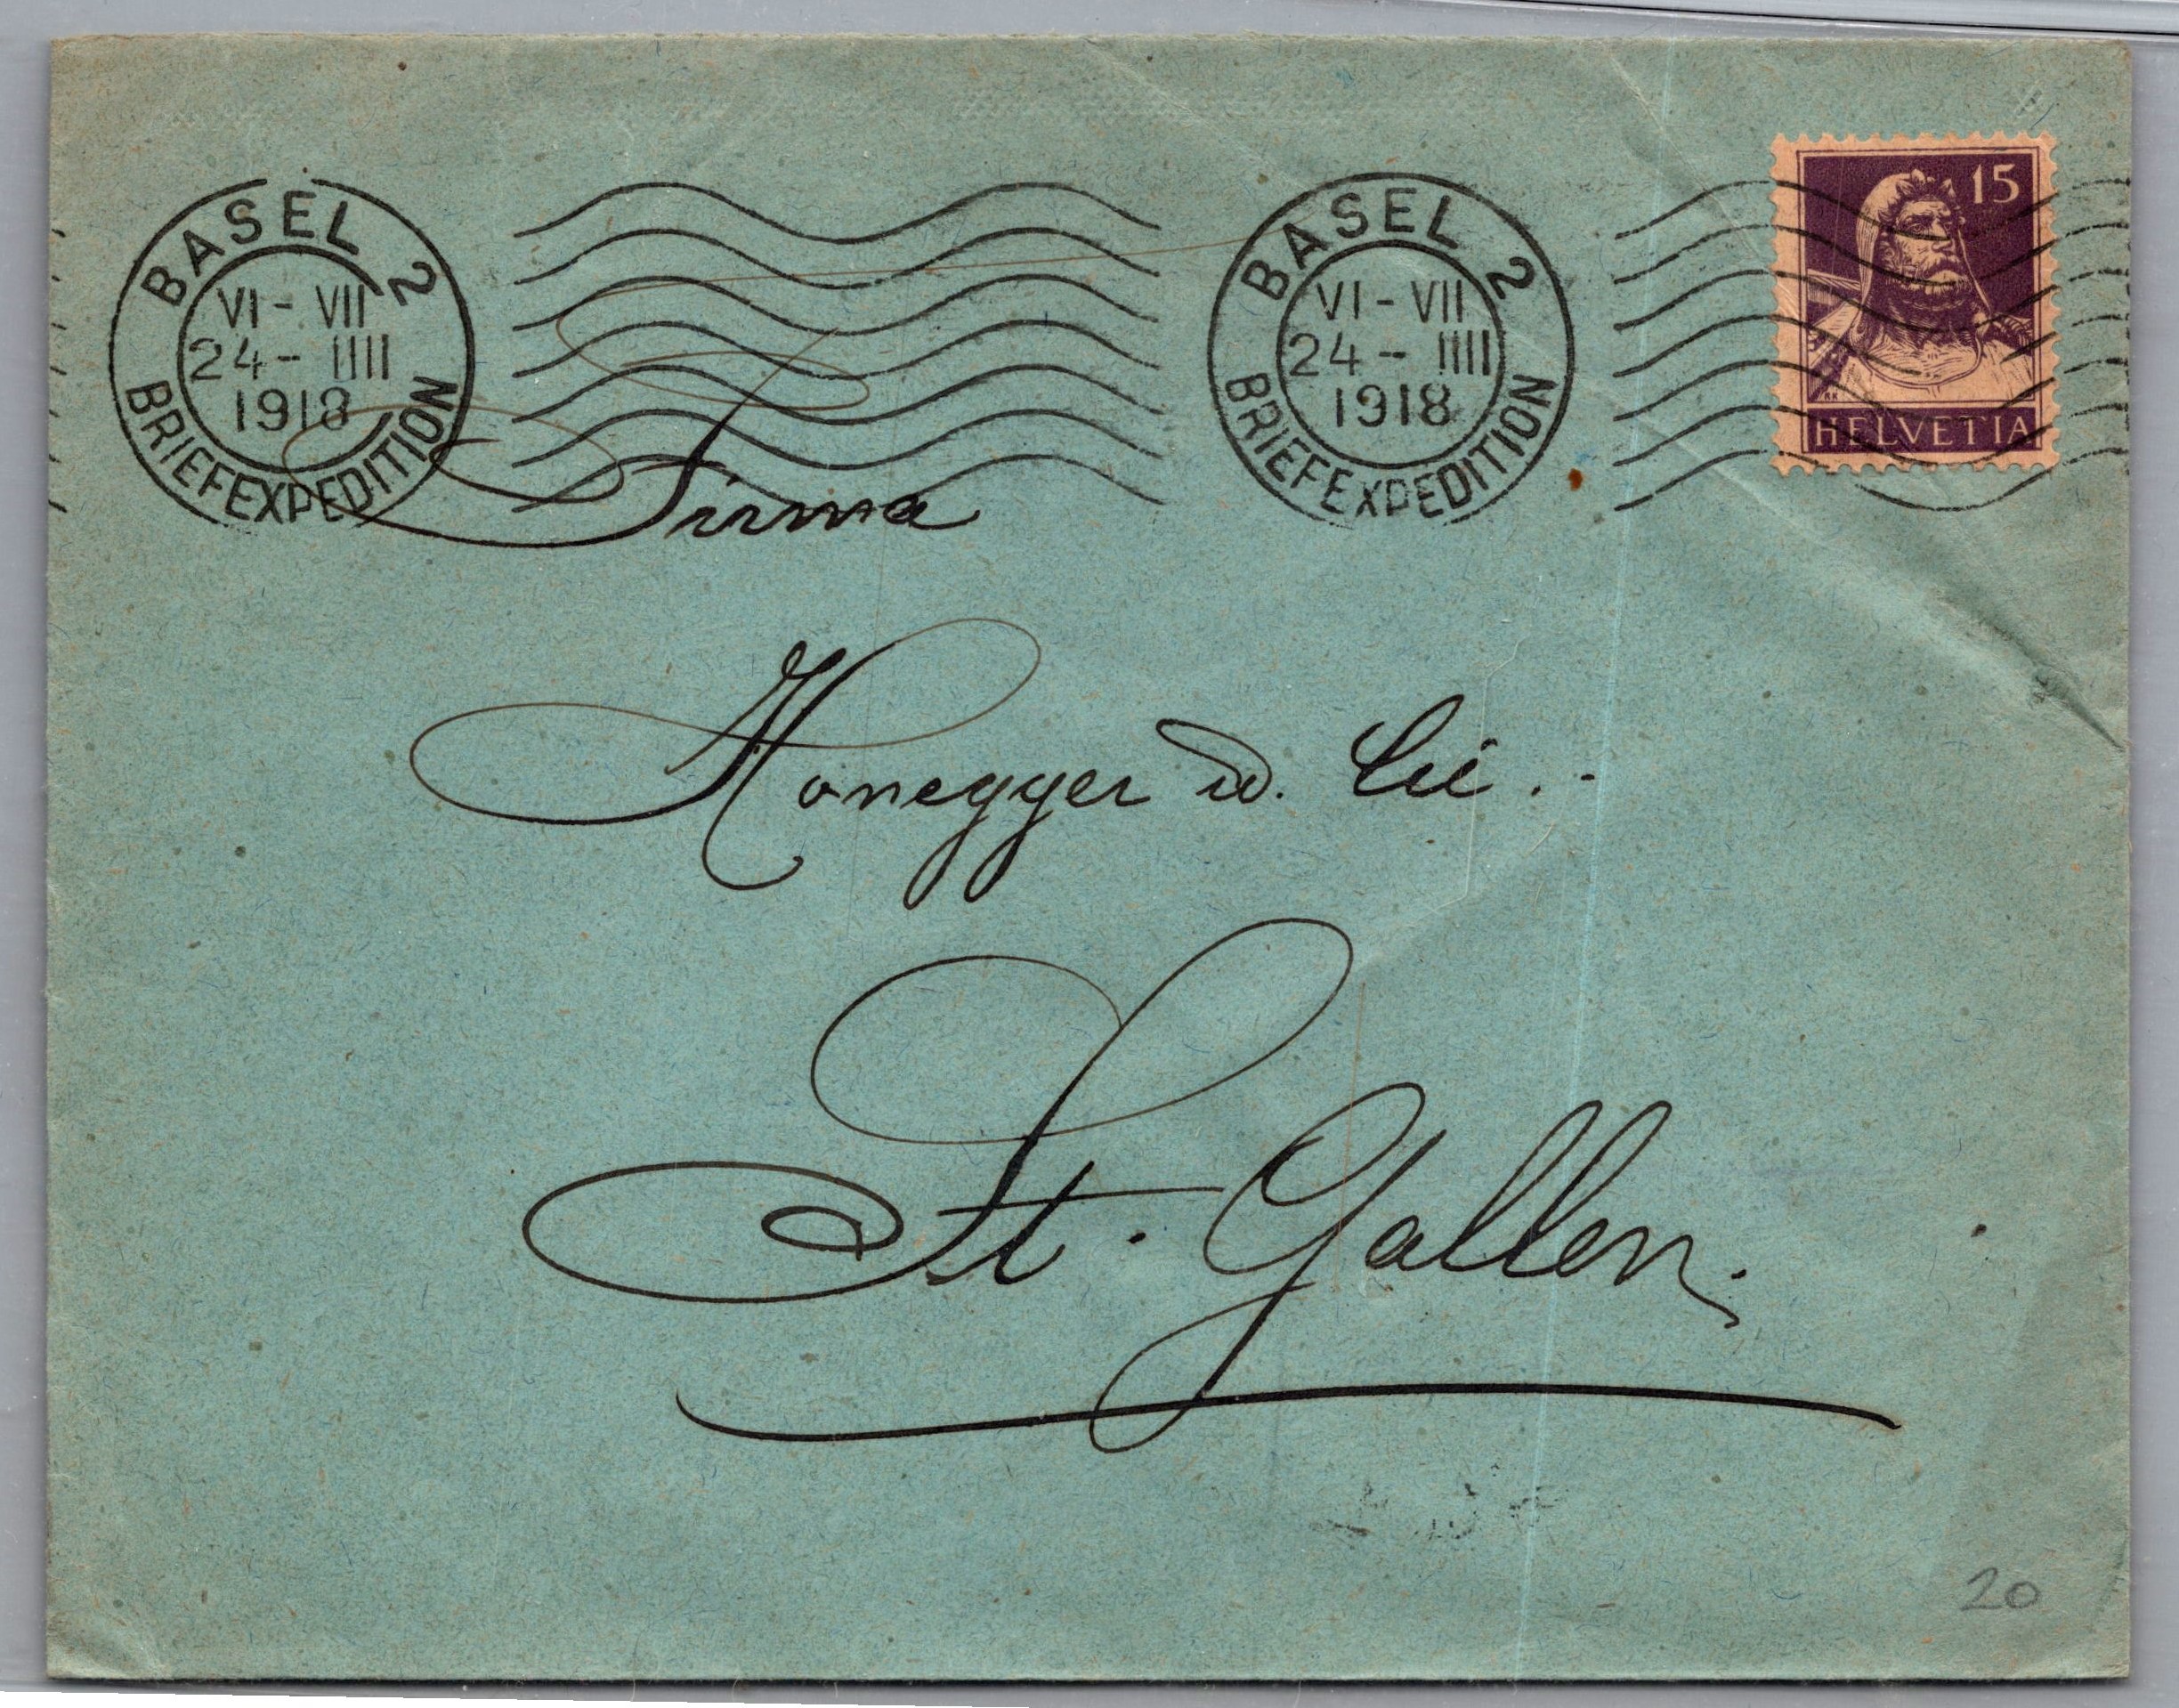 BASEL 2
VI - VII
24 - IIII
1918
BRIEFEXPEDITION
BASEL 2
VI - VII
24 - IIII
1918
BRIEFEXPEDITION
15
HELVETIA
Firma
Honegger & Cie.
St. Gallen.
20